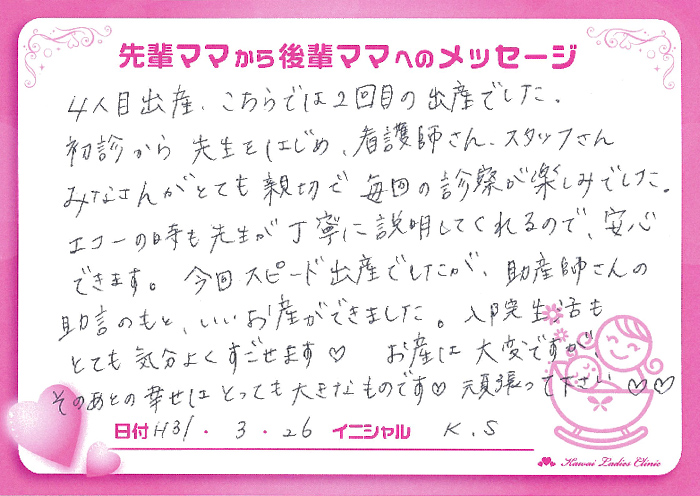 先輩ママから後輩ママへのメッセージ
4人目出産、こちらでは2回目の出産でした。
初診から 先生をはじめ、看護師さん、スタッフさん
みなさんがとても親切で 毎回の診察が楽しみでした。
エコーの時も先生が丁寧に説明してくれるので、安心
できます。 今回スピード出産でしたが、助産師さんの
助言のもと、いいお産ができました。入院生活も
とても気分よくすごせます♡ お産は大変ですが、
そのあとの幸せはとっても大きなものです♡ 頑張って下さい ♡♡
日付 H31・3・26 イニシャル K.S
Kawai Ladies Clinic